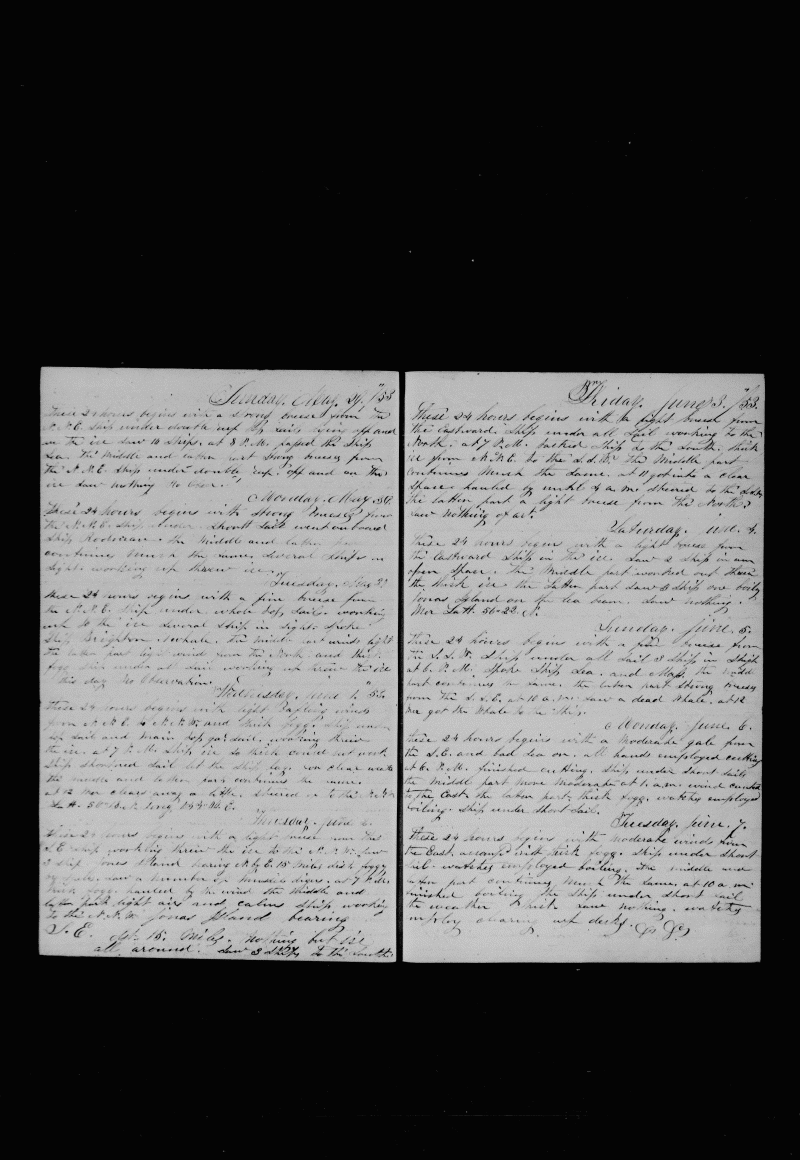 Sunday, May 29. /53
These 24 hours begins with a strong breese from the
N.N.E. Ship under double reef top sails lying off and on
in the ice saw 10 Ships. at 8 P.M. passed the Ship
Sea. The Middle and latter part strong breeses from
the N.N.E. Ship under double reef. off and on the
ice saw nothing
Monday. May 30
These 24 hours begins with strong breeses from
the N.N.E. Ship under Short Sail went onboard
Ship
continues much the same. several Ships in
sight. working up threw ice.
Tuesday, May 31
these 24 hours begins with a fine breese from
the N.N.E. Ship under whole top Sails. working
up to the ice several ship in sight. spoke
Ship Brighton. 1 whale. the middle part winds light
the latter part light wind from the North and thick
fogg ship under all sail working up threw the ice
this day No Observation
Wednesday, June 1, " 53.
these 24 hours begins with light baffling winds
from N.N.E. to N.N.W. and thick fogg. ship under
all sail and main top gal. sail. working threw
the ice. at 7 P.M. Ship ice so thick could not work
Ship shortened sail let the ship lay. no clear water
the middle and latter part continues the same.
at 12 Mer clears away a little. steered in to the N.
Latt.
Thursday. June 2.
these 24 hours begins with a light breese from the
S.E. ship working threw the ice to the N.N.W. saw
3 ship Jonas Island bearing N. by E. 15 Miles dist. foggy
saw a number of at 7 P.M.
thick fogg. hauled by the wind the Middle and
latter part light airs and calms Ship working
to the N.N.W. Jonas Island bearing
S.E. dist. 15. Miles. Nothing but ice
all around. Saw 3 Ships to the South.
Friday. June 3. /53.
These 24 hours begins with a light breese from
the Eastward. Ship under all Sail working to the
North. at 7 P.M. tacked ship to the South. thick
ice from N.N.E. to the S.S.W. The Middle part
continues Much the Same. at 11 got into a clear
Space hauled up until 4 a.m. steered to the
the latter part a light breese from the North
saw Nothing of art.
Saturday. June. 4.
these 24 hours begins with a light breese from
the Eastward Ship in the ice. Saw 2 ship in an
open Space. the Middle part worked out threw
the thick ice the latter part Saw 4 Ship one boiling
Jonas Island on the lea beam. Saw nothing.
Mer Latt. 56-22 N.
Sunday. June. 5.
these 24 hours begins with a fine breese from
the S.S.W. Ship under all Sail 3 Ship in Sight
at 6. P.M. spoke Ship Sea. and the midd
part continues the same. the latter part Strong breeses
from the S.S.E. at 10 a.m. saw a dead Whale. at 12
we got the Whale to the Ship.
Monday. June. 6.
these 24 hours begins with a moderate gale from
the S.E. and bad Sea on. all hands employed cutting
at 6. P.M. finished cutting. Ship under Short Sails
the Middle part more moderate at 1. a.m. wind canted
to the East. the latter part, thick fogg. watches employed
boiling. Ship under Short Sail.
Tuesday. June. 7.
these 24 hours begins with moderate winds from
the East, accomp with thick fogg. Ship under Short
sail. watches employed boiling. The middle and
latter part continues Much the Same. at 10 a.m.
finished boiling. the Ship under Short Sail
the weather thick saw nothing. watches
employ clearing up decks.